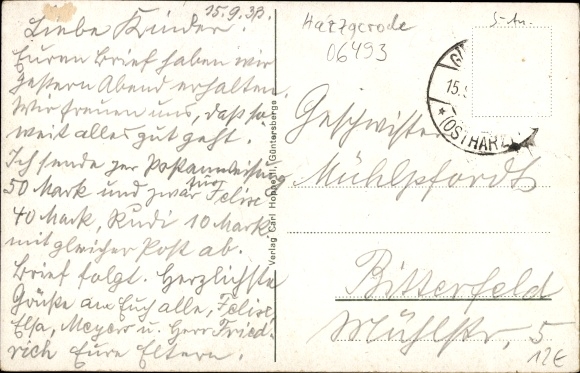 15.9.33.
Liebe Kinder!
Euren Brief haben wir
gestern Abend erhalten.
Wir freuen uns, daß so-
weit alles gut geht.
Ich sende per Postanweisung
50 Mark und zwar für Felixe
40 Mark, Rudi 10 Mark
mit gleicher Post ab.
Brief folgt. Herzlichste
Grüße an Euch alle, Felixe,
Elsa, Meyers u. Herr Fried-
rich Eure Eltern.
Verlag Carl Hoppe III, Güntersberge
Harzgerode
06493
15.
(OSTHARZ)
Geschwister
Mühlpfordt
Bitterfeld
Mühlstr. 5
12€